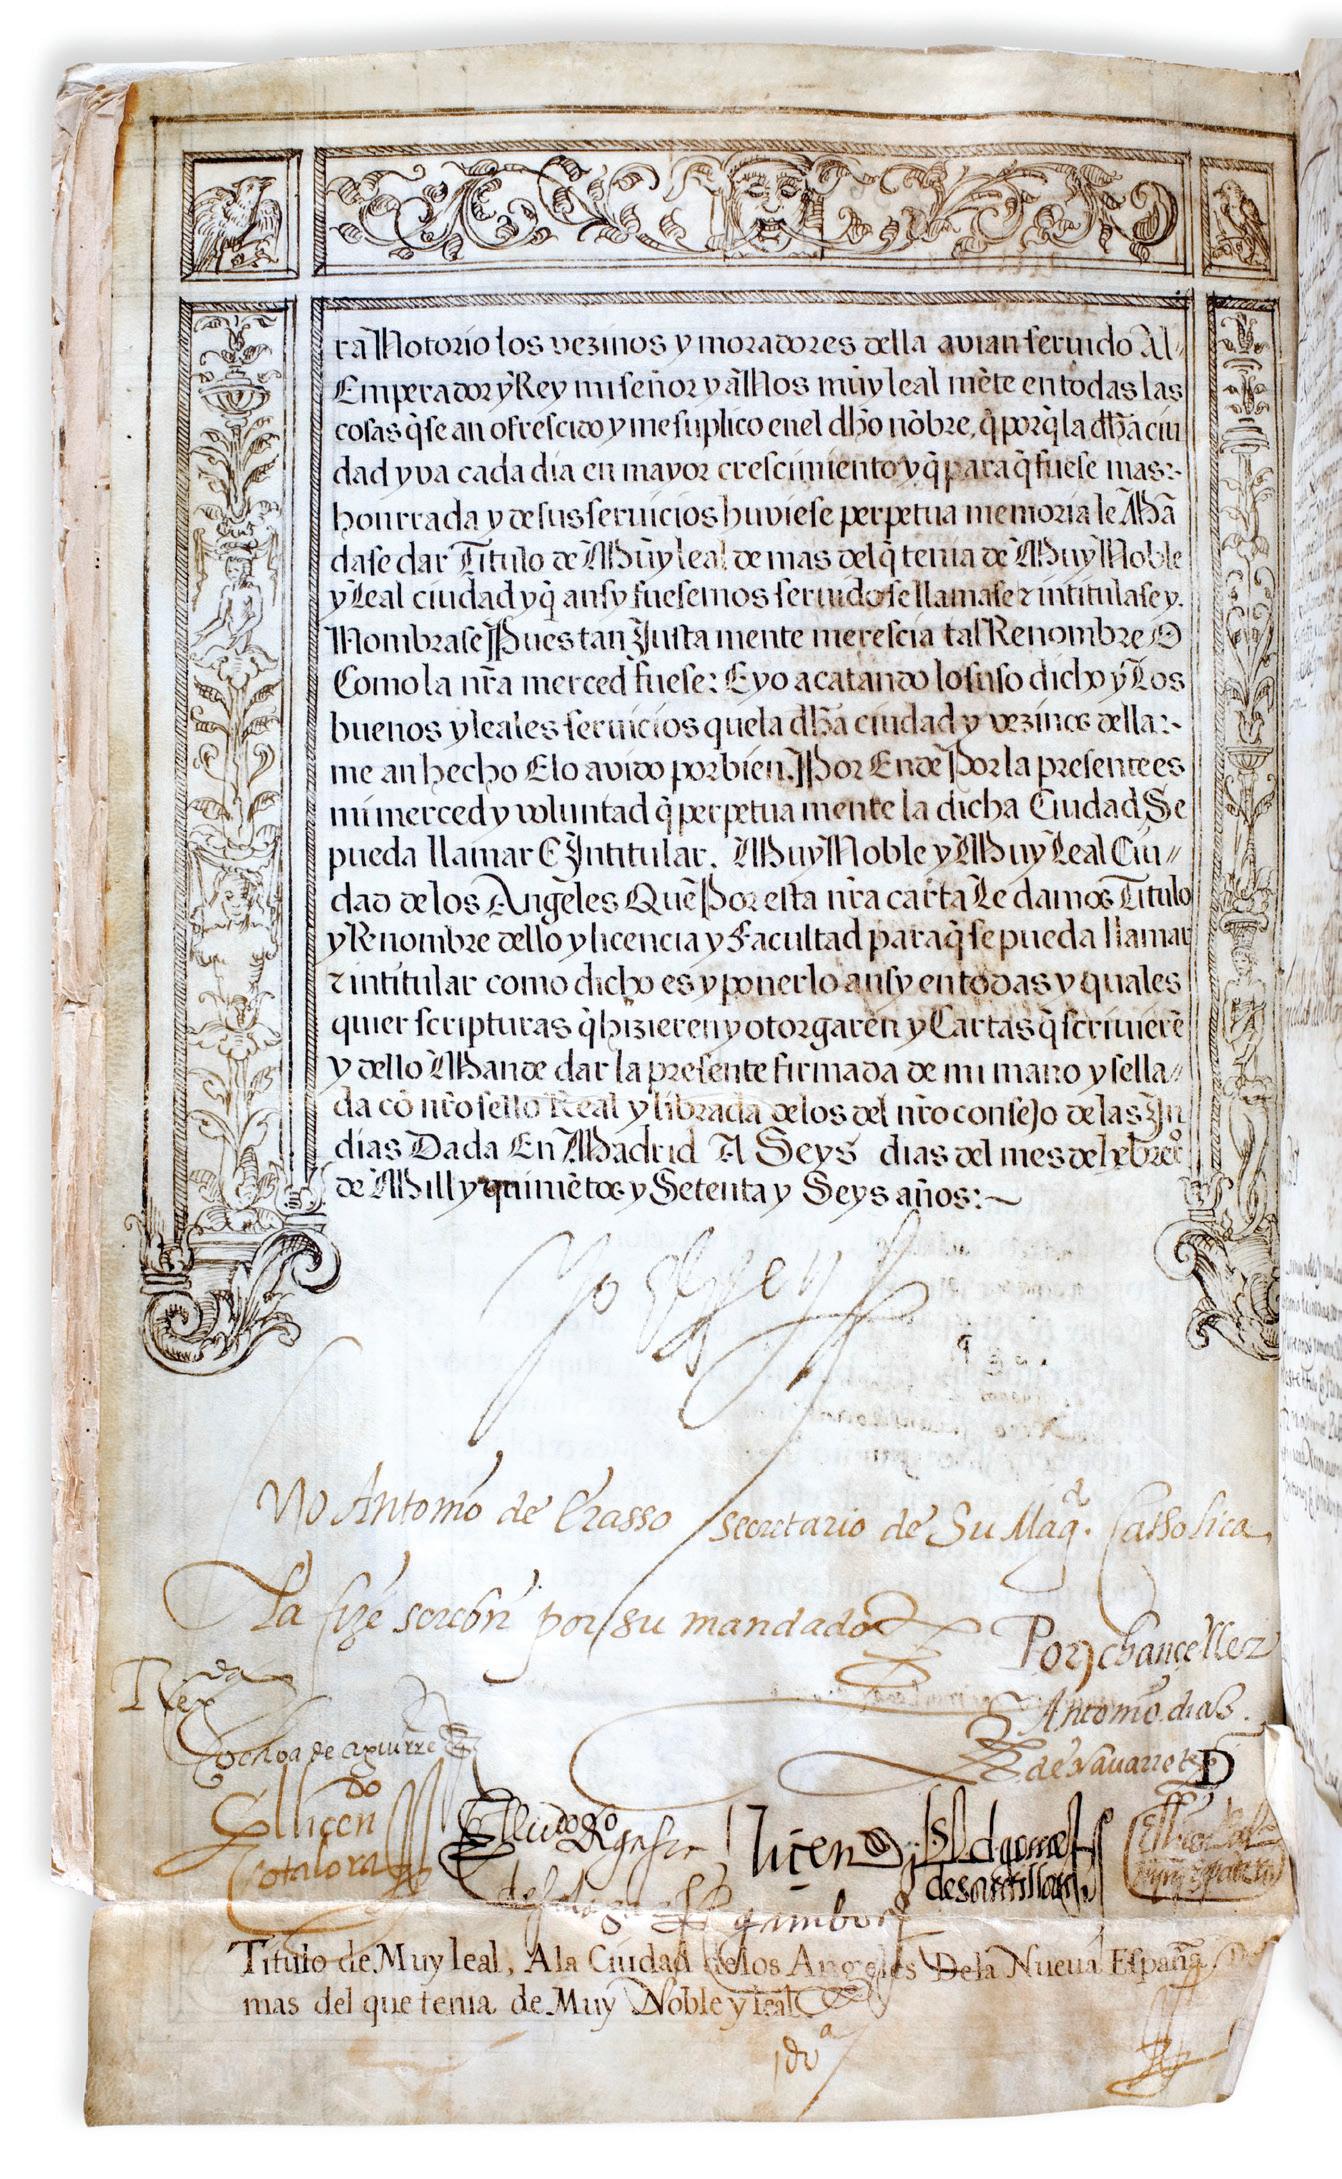 ra Notorio los vezinos y moradores della avian seruido Al
Emperador y Rey mi señor y a Nos muy leal mẽte en todas las
cosas q̃ se an ofrescido y me suplico en el dho nõbre, q̃ porq̃ la dha ciu
dad yva cada dia en mayor crescimiento y q̃ para q̃ fuese mas:-
honrrada y de sus seruicios huviese perpetua memoria le Mã
dase dar Titulo de Muy leal de mas del q̃ tenia de Muy Noble
y Leal ciudad y q̃ ansy fuesemos seruido se llamase e intitulase y.
Nombrase Pues tan Justa mente merescia tal Renombre O
Como la nr̃a merced fuese: E yo acatando lo suso dicho y Los
buenos y leales seruicios que la dha ciudad y vezinos della:-
me an hecho E lo avido por bien. Por Ende Por la presente es
mi merced y voluntad q̃ perpetua mente la dicha Ciudad Se
pueda llamar E Intitular. Muy Noble y Muy Leal Ciu//
dad de los Angeles Que Por esta nr̃a carta Le damos Titulo
y Renombre dello y licencia y Facultad para q̃ se pueda llamar
e intitular como dicho es y ponerlo ansy en todas y quales
quier scripturas q̃ hizieren y otorgaren y Cartas q̃ scriuierẽ
y dello Mande dar la presente firmada de mi mano y sella//
da cõ nr̃o sello Real y librada de los del nr̃o consejo de las Jn
dias Dada En Madrid A Seys dias del mes de hebrero
de Mill y quiniẽtos y Setenta y Seys años:~
Yo el Rey
Yo Antonio de Erasso secretario de Su Mag.d Catholica
La fize screbir por su mandado
Por chanceller
Regda
Antonio diaz
Ochoa de aguirre
de Navarrete
D
El licendo
otalora
El licen.do
licendo
gomez
de santillan
gamboa
Titulo de Muy leal, A la Ciudad de los Angeles De la Nueua España
mas del que tenia de Muy Noble y leal